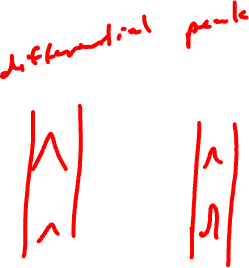 differential peak